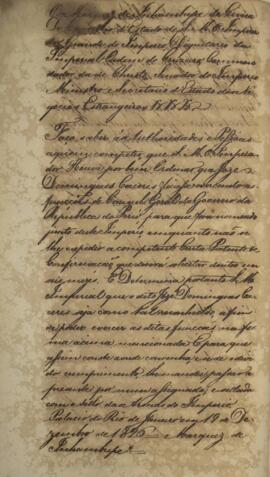 O Marquez de Inhambupe de Cima
do Conselho d'Estado de S. M. O Impera
Grande do Imperio, Dignitario da
Imperial Ordem do Cruzeiro, Commen
dador da de Christo, Senador do Imperio
Ministro e Secretario d'Estado dos Ne
gocios Estrangeiros &. &. &.
Faço saber ás Authoridades e Pessoas
a quem competir que S. M. O Impera
dor Houve por bem Ordenar que José
Domingues Caceres fique exercendo as
funcções de Consul Geral do Governo da
Republica do Perú para que foi nomeado
junto deste Imperio emquanto não se
lhe expedir a competente Carta Patente de
Confirmação que deverá obter dentro em
seis mezes. E Determina portanto S. M.
Imperial que o dito José Domingues Ca
ceres seja como tal reconhecido, a fim
de poder exercer as ditas funcções na for
ma acima mencionada. E para que
assim conste onde convier, e se dê o de
vido cumprimento, lhe mandei passar a
presente por mim assignada, e sellada
com o sello das Armas do Imperio
Palacio do Rio de Janeiro em 19 de De
zembro de 1825 Marquez de
Inhambupe